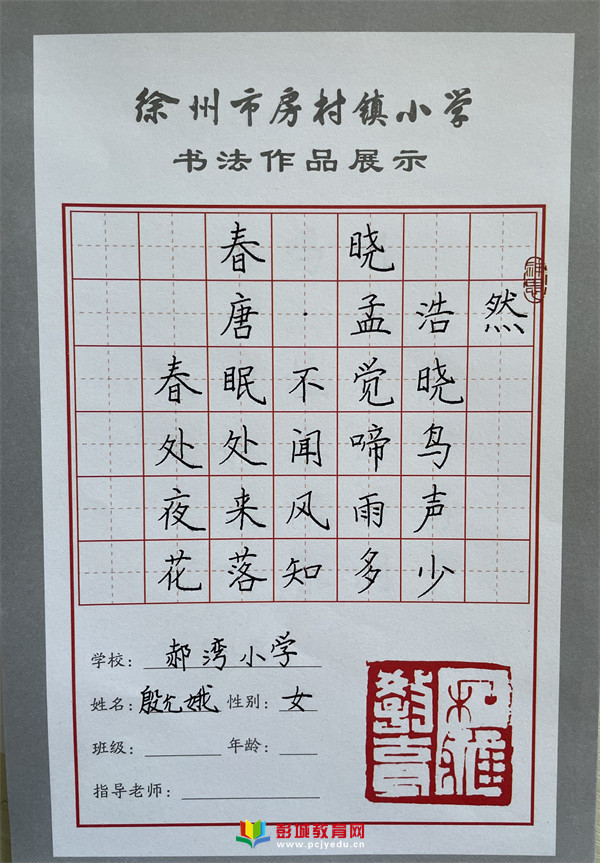 徐州市房村镇小学
书法作品展示
春晓
唐·孟浩然
春眠不觉晓
处处闻啼鸟
夜来风雨声
花落知多少
学校：郝湾小学
姓名：殷允娥 性别：女
班级： 年龄：
指导老师：
彭城教育网
www.pcjyedu.cn